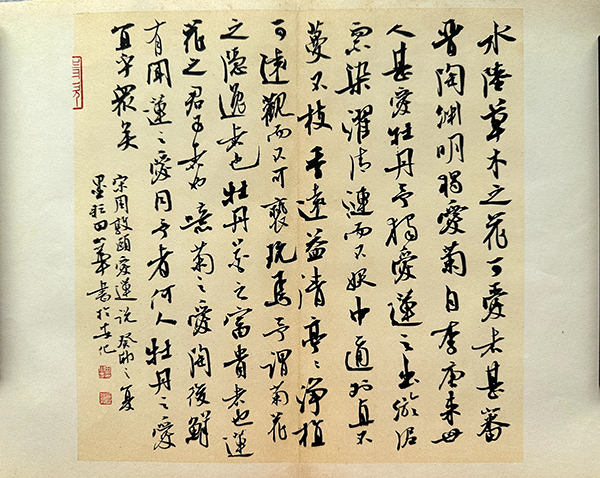 水陸草木之花可愛者甚蕃
晉陶淵明獨愛菊自李唐來世
人甚愛牡丹予獨愛蓮之出淤泥
而不染濯清漣而不妖中通外直不
蔓不枝香遠益清亭亭淨植
可遠觀而不可褻玩焉予謂菊花
之隱逸者也牡丹花之富貴者也蓮
花之君子者也噫菊之愛陶後鮮
有聞蓮之愛同予者何人牡丹之愛
宜乎眾矣
宋周敦頤愛蓮說癸卯之夏
墨田華書於